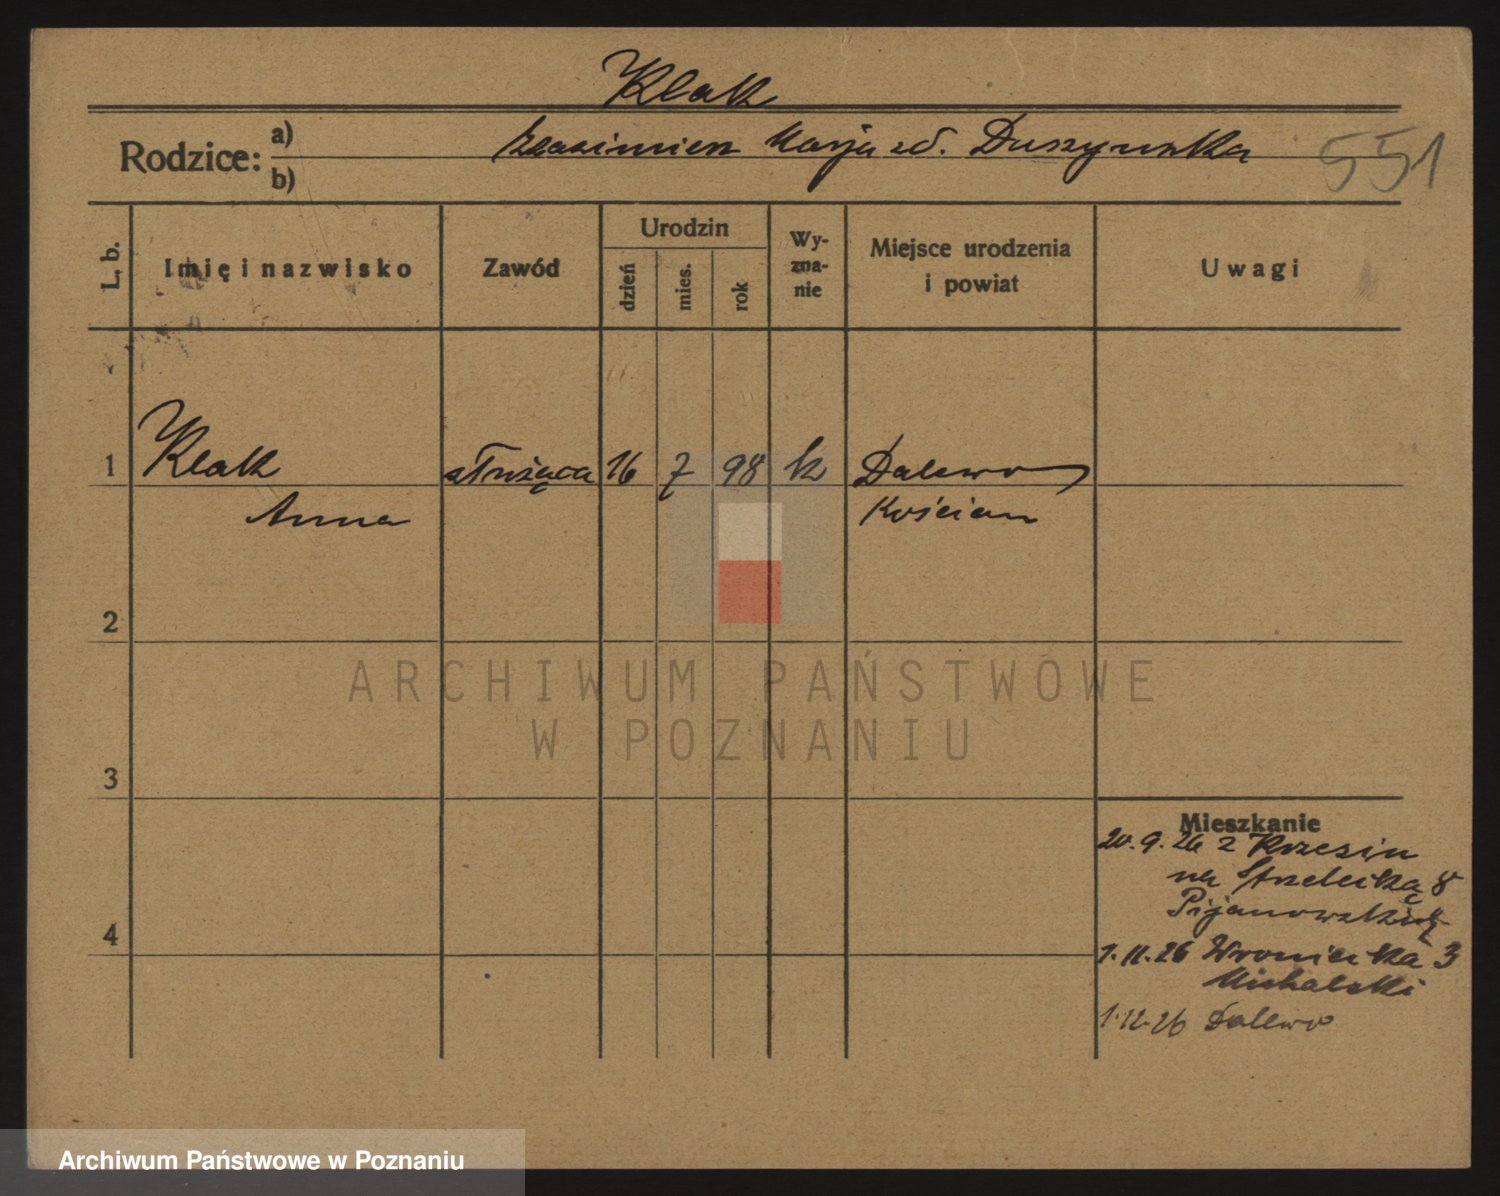 Klak
Rodzice: a)
b)
Kazimierz Marja zd. Duszyńska
551
L. b.
Imię i nazwisko
Zawód
Urodzin
dzień
mies.
rok
Wy-
zna-
nie
Miejsce urodzenia
i powiat
Uwagi
1 Klak służąca 16 7 98 k Dalewo
Anna Kościan
2
3
4
Mieszkanie
20.9.26 z Krzesin
na Strzelecką 8
1.11.26 Wroniecka 3
Michalski
1.12.26 Dalewo
ARCHIWUM PAŃSTWOWE
W POZNANIU
Archiwum Państwowe w Poznaniu